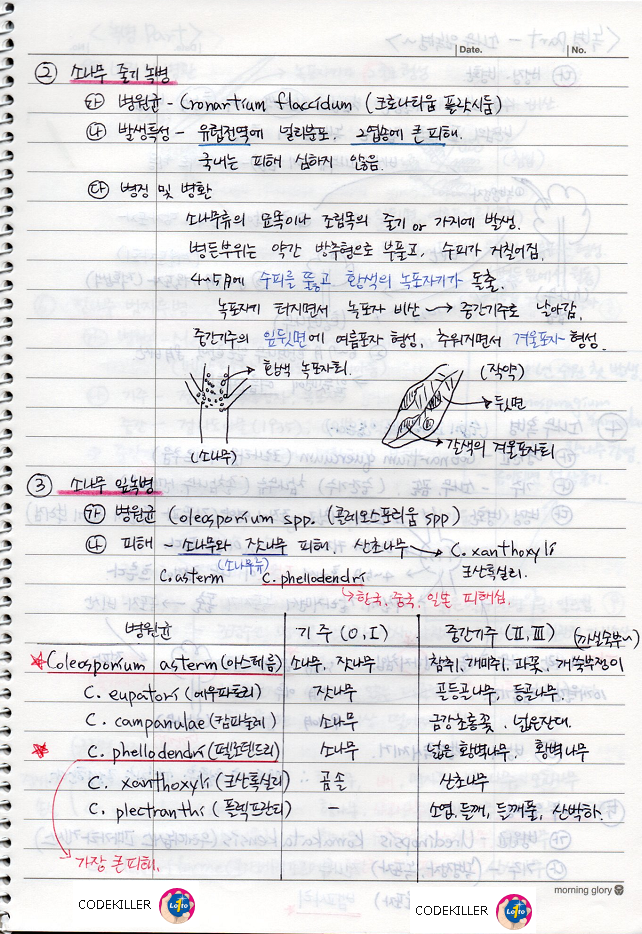 Date. No.
② 소나무 줄기 녹병
㉮ 병원균 - Cronartium flaccidum (크로나티움 플랏시둠)
㉯ 발생특성 - 유럽전역에 널리분포. 2엽송에 큰 피해.
국내는 피해 심하지 않음.
㉰ 병징 및 병환
소나무류의 묘목이나 조림목의 줄기 or 가지에 발생.
병든부위는 약간 방추형으로 부풀고, 수피가 거칠어짐.
4~5月에 수피를 뚫고 황색의 녹포자기가 돌출.
녹포자기 터지면서 녹포자 비산 → 중간기주로 날아감.
중간기주의 잎뒷면에 여름포자 형성, 추워지면서 겨울포자 형성.
황색 녹포자퇴.
(작약)
뒷면
갈색의 겨울포자퇴
(소나무)
③ 소나무 잎녹병
㉮ 병원균 Coleosporium spp. (콜레오스포리움 spp)
㉯ 피해 - 소나무와 잣나무 피해. 산초나무 → C. xanthoxyli
(소나무류) 크산톡실리.
C. asterm C. phellodendri
→ 한국, 중국, 일본 피해심.
병원균 기주 (O, I) 중간기주 (II, III)
★ Coleosporium asterm (아스테룸) 소나무, 잣나무 참취, 개미취, 과꽃, 개쑥부쟁이
C. eupatori (에우파토리) 잣나무 골등골나무, 등골나무.
C. campanulae (캄파눌레) 소나무 금강초롱꽃. 넓은잔대.
★ C. phellodendri (펠로덴드리) 소나무 넓은 황벽나무, 황벽나무
C. xanthoxyli (크산톡실리) 곰솔 산초나무
C. plectranthi (플렉트란티) - 소엽, 들깨, 들깨풀, 산박하.
→ 가장 큰피해.
morning glory
CODEKILLER Lotto CODEKILLER Lotto